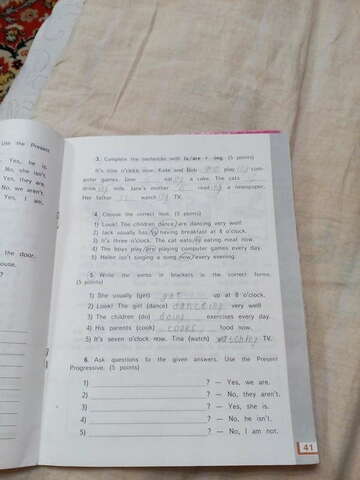 Use the Present
Yes, he is.
No, she isn't.
Yes, they are.
No, we aren't.
Yes, I am.
the door.
house.
3. Complete the sentences with is/are + -ing. (5 points)
It's nine o'clock now. Kate and Bob are play ing com-
puter games. Dave eat ing a cake. The cats
drink ing milk. Jane's mother read ing a newspaper.
Her father watch ing TV.
4. Choose the correct item. (5 points)
1) Look! The children dance/are dancing very well.
2) Jack usually has/is having breakfast at 8 o'clock.
3) It's three o'clock. The cat eats/is eating meat now.
4) The boys play/are playing computer games every day.
5) Helen isn't singing a song now/every evening.
5. Write the verbs in brackets in the correct forms.
(5 points)
1) She usually (get) get up at 8 o'clock.
2) Look! The girl (dance) dancing very well.
3) The children (do) doing exercises every day.
4) His parents (cook) cooks food now.
5) It's seven o'clock now. Tina (watch) watching TV.
6. Ask questions to the given answers. Use the Present
Progressive. (5 points)
1) ? — Yes, we are.
2) ? — No, they aren't.
3) ? — Yes, she is.
4) ? — No, he isn't.
5) ? — No, I am not.
41